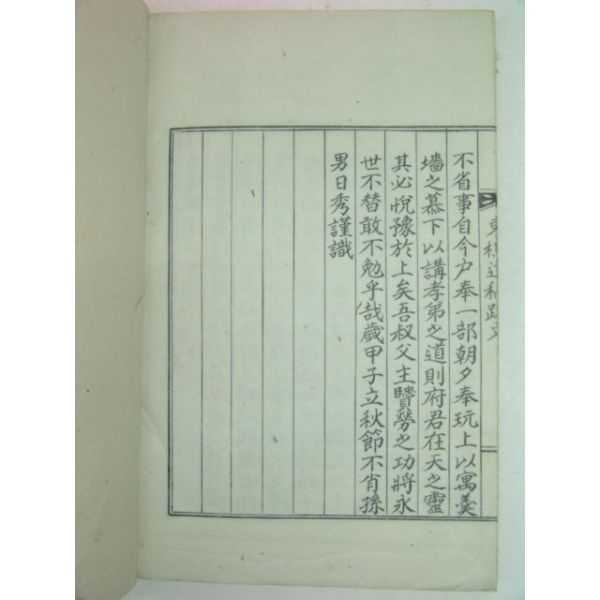 東
跋文
不省事自今戶奉一部朝夕奉玩上以寓羹
墻之慕下以講孝弟之道則府君在天之靈
其必悅豫於上矣吾叔父主賢勞之功將永
世不替敢不勉乎哉歲甲子立秋節不肖孫
男日秀謹識